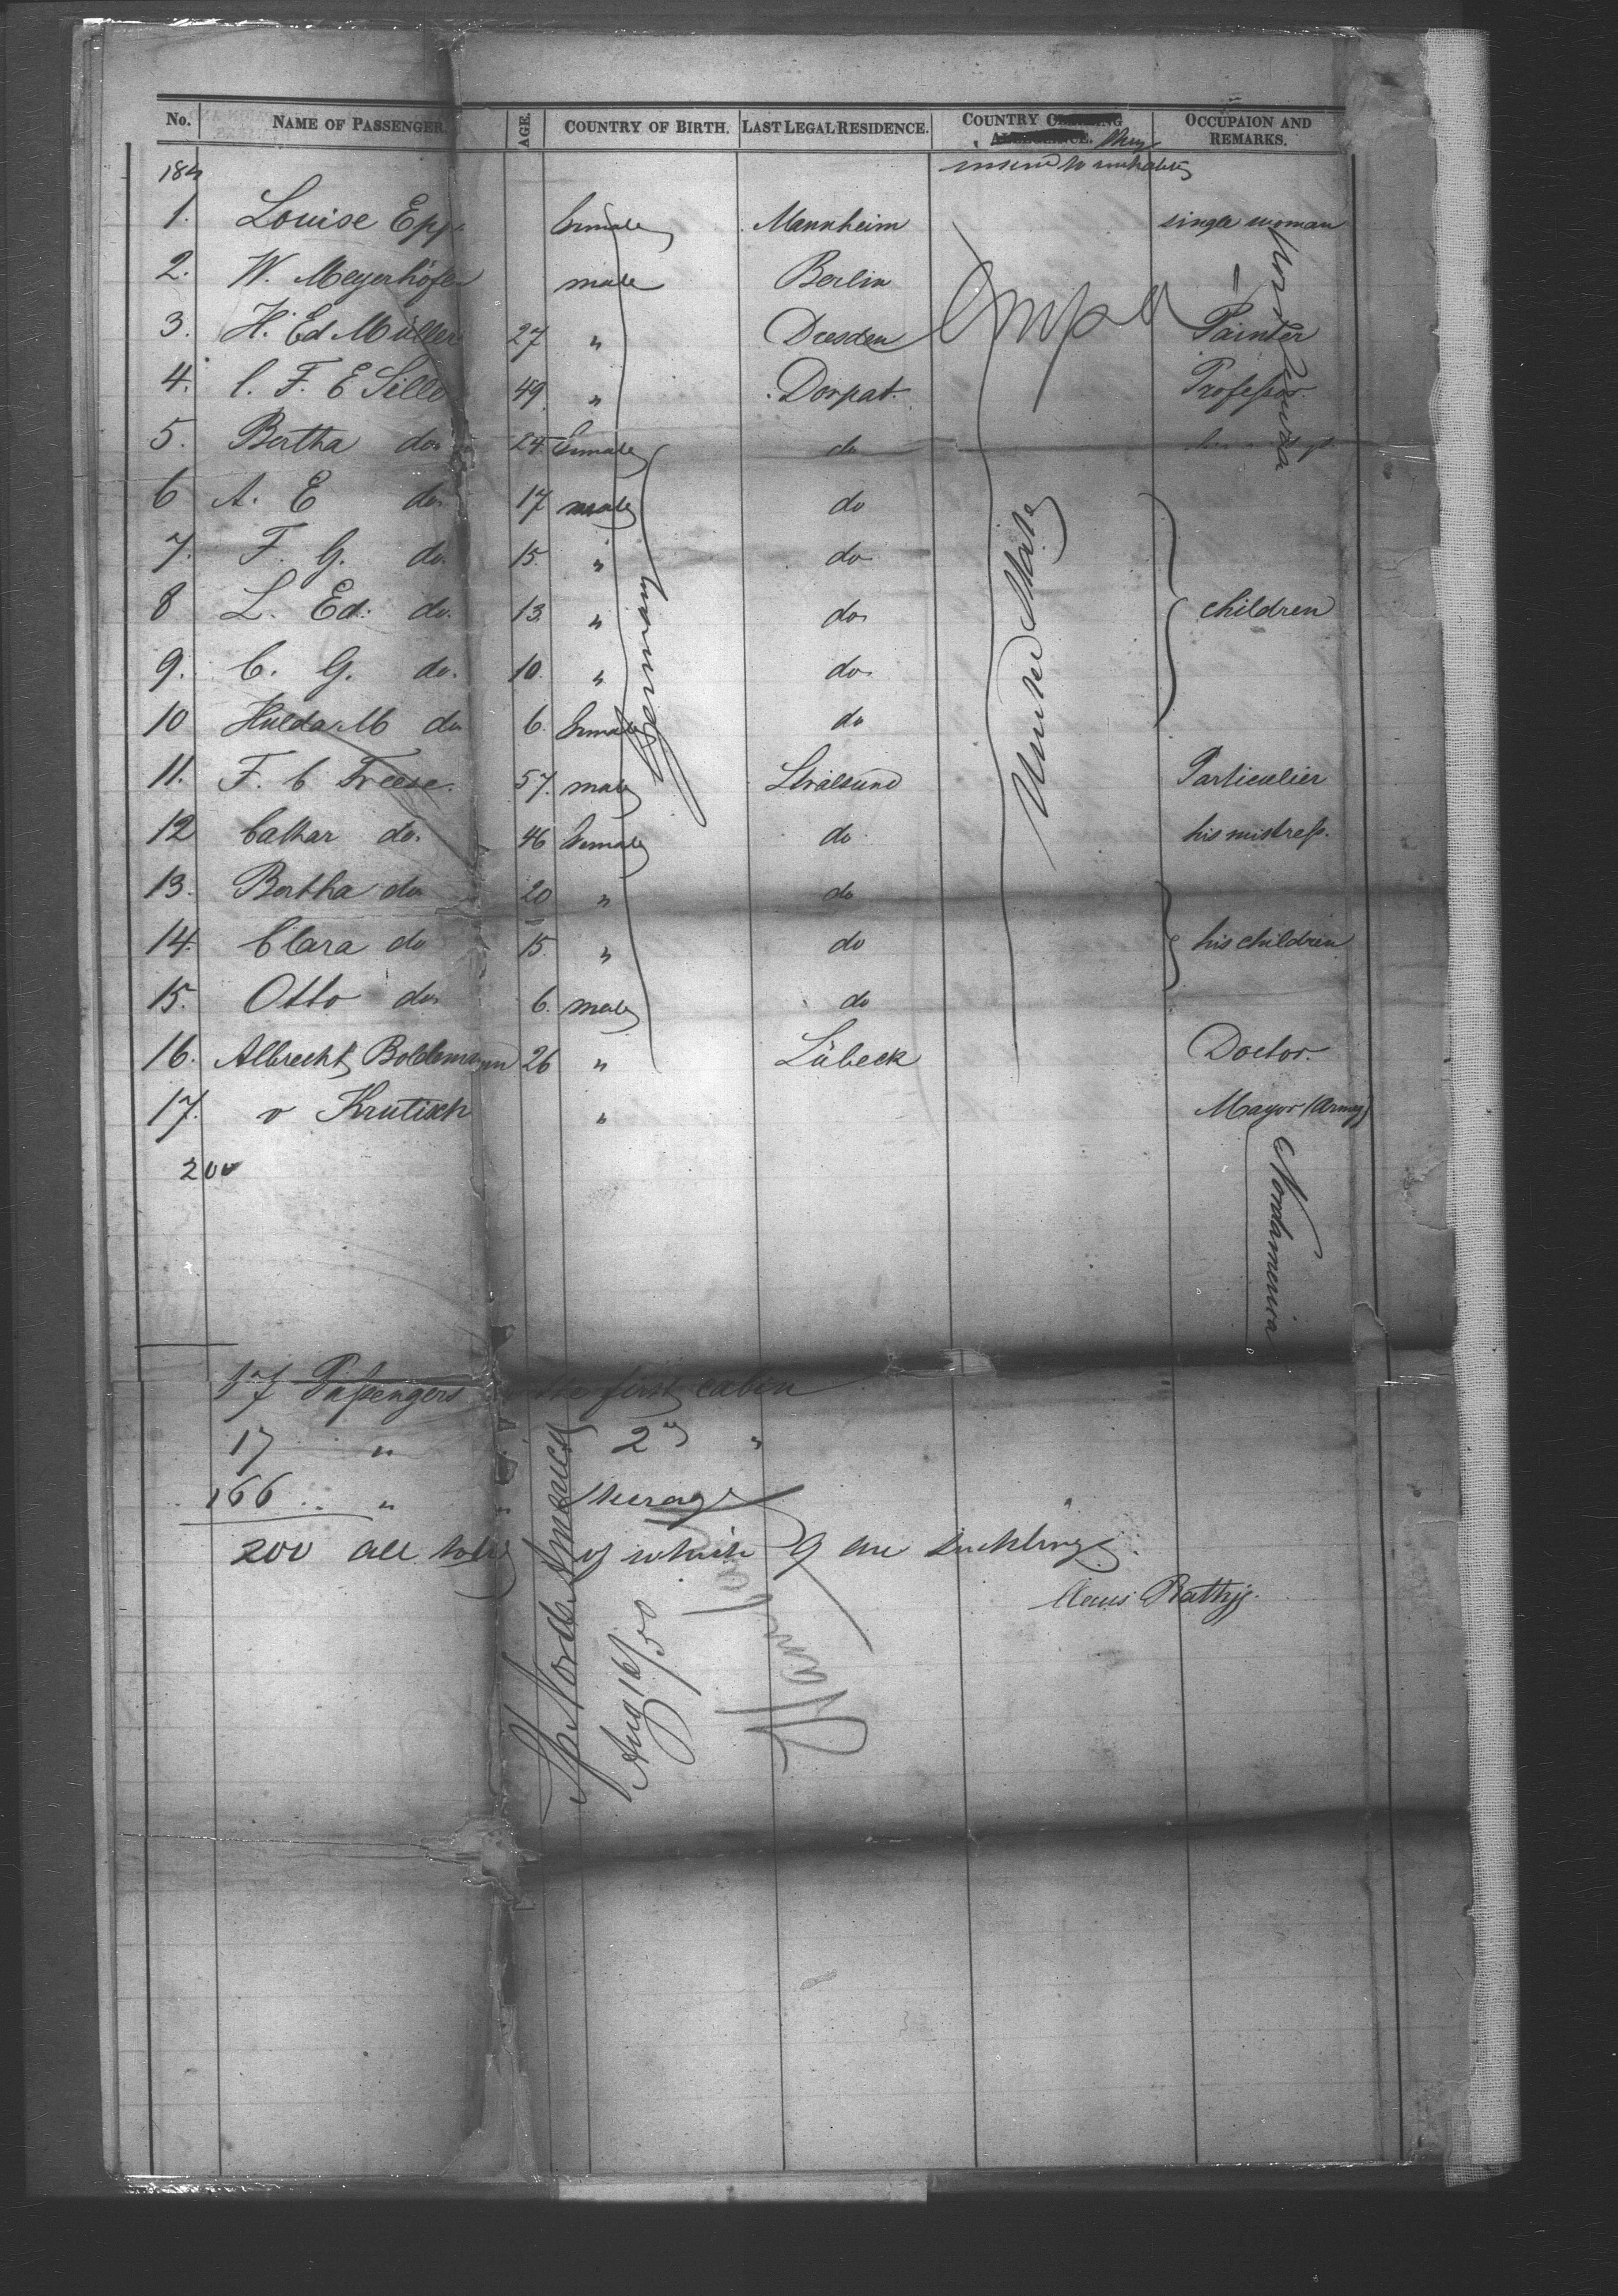 No. NAME OF PASSENGER. AGE. COUNTRY OF BIRTH. LAST LEGAL RESIDENCE. COUNTRY they OCCUPAION AND REMARKS.
intend to inhabit
184
1. Louise Epp female Mannheim single woman
2. W. Meyerhöfer male Berlin –
3. H. Ed Müller 27 " Dresden Painter
4. C. F. E Sille 49 " Dorpat. Professor.
5. Bertha do 24 female do
6 A. E do 17 male do
7. F. G. do. 15. " do
8 L. Ed: do. 13. " do children
9. C. G. do. 10. " do
10 Hulda M do 6. female do
11. F. C Freese. 57. male Stralsund Particulier
12 Cathar do. 46 female do his mistress.
13. Bertha do 20 " do
14. Clara do 15. " do his children
15. Otto do 6. male do
16. Albrecht Boldemann 26 " Lübeck Doctor.
17. v Krutisch " Mayor (Army)
200
Germany
United States
Nordamerica
17 Passengers the first cabin
17 " 2d "
166 " " Sterage
200 all told of which 9 are sucklings.
Claus Rathje.
Sp. North America
Aug 16/50
Hamburg